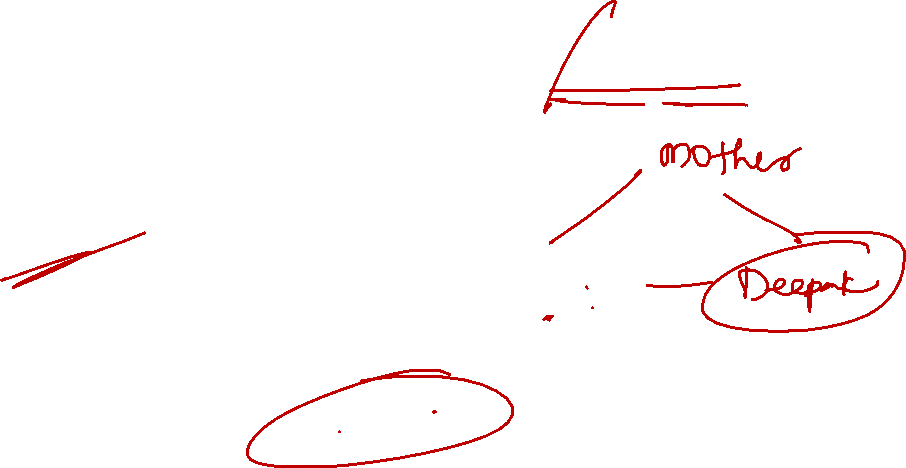 mother
Deepak